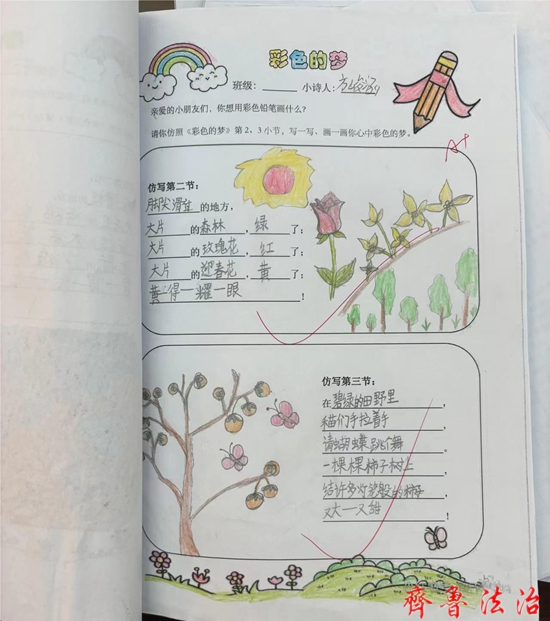 彩色的梦
班级：______ 小诗人：
亲爱的小朋友们，你想用彩色铅笔画什么？
请你仿照《彩色的梦》第 2、3 小节，写一写、画一画你心中彩色的梦。
A+
仿写第二节：
脚尖滑过的地方，
大片的森林，绿了；
大片的玫瑰花，红了；
大片的迎春花，黄了；
黄—得—耀—眼！
仿写第三节：
在碧绿的田野里，
们手拉着手，
请蝴蝶跳个舞。
一棵棵柿子树上，
结许多灯笼般的柿子，
又大—又甜！
齊魯法治